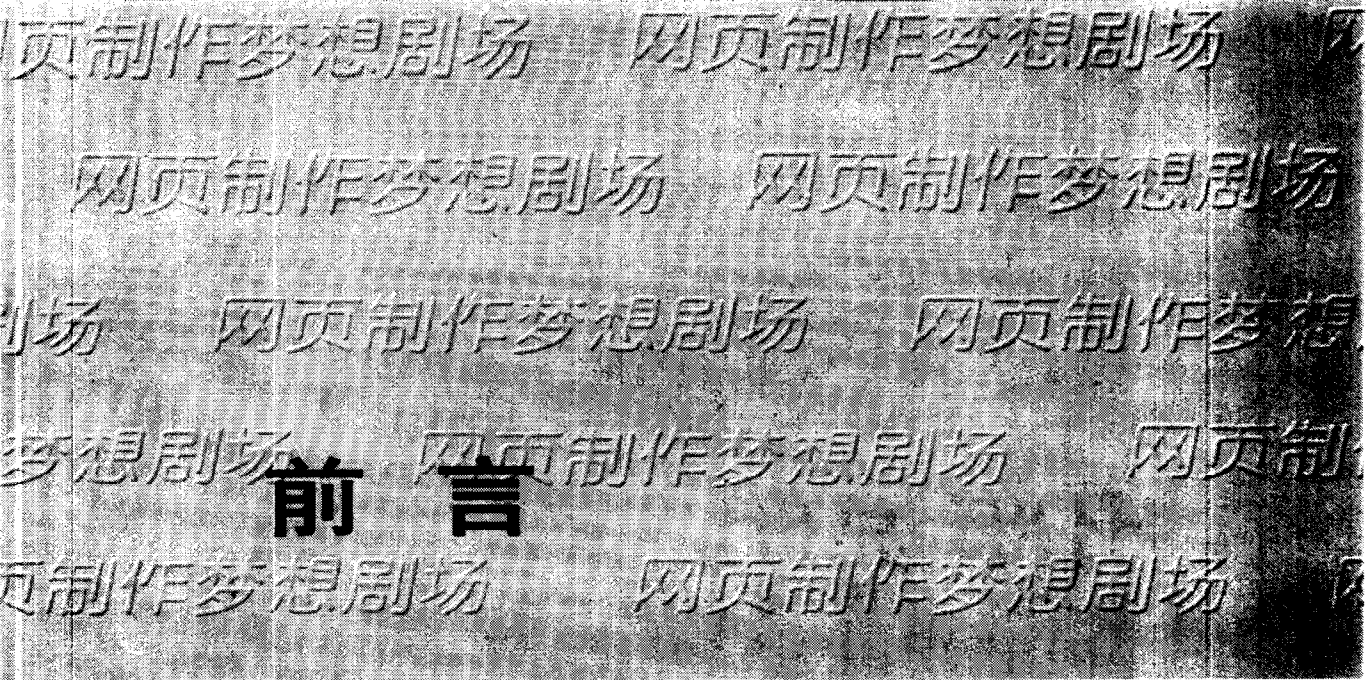 页制作梦想剧场 网页制作梦想剧场 网
网页制作梦想剧场 网页制作梦想剧场
剧场 网页制作梦想剧场 网页制作梦想
梦想剧场 网页制作梦想剧场 网页制
前 言
页制作梦想剧场 网页制作梦想剧场 网